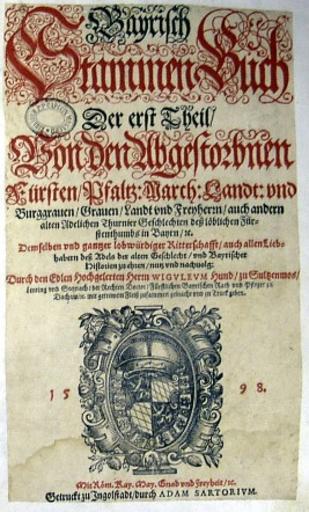 Bayrisch
Stammen Buch
Der erst Theil/
Von den Abgestorbnen
Fürsten/Pfaltz: March: Landt: vnd
Burggrauen/Grauen/Landt vnd Freyherrn/auch andern
alten Adelichen Thurnier Geschlechten deß löblichen Für-
stenthumbs in Bayrn/etc.
Demselben vnd gantzer lobwürdiger Ritterschafft/auch allen Lieb-
habern deß Adels der alten Geschlecht/vnd Bayrischer
Historien zu ehren/nutz vnd
Durch den Edlen Hochgelerten Herrn WIGVLEVM Hund/zu Sultzenmos/
vnd der Rechten Doctor/Fürstlichen Bayrischen Rath vnd Pfleger zu
Dachaw/etc. mit getrewem Fleiß zusammen gebracht vnd in Truck geben.
15 98.
Mit Röm. Kay. May. Gnad vnd Freyheit/etc.
Getruckt zu Ingolstadt/durch ADAM SARTORIVM.